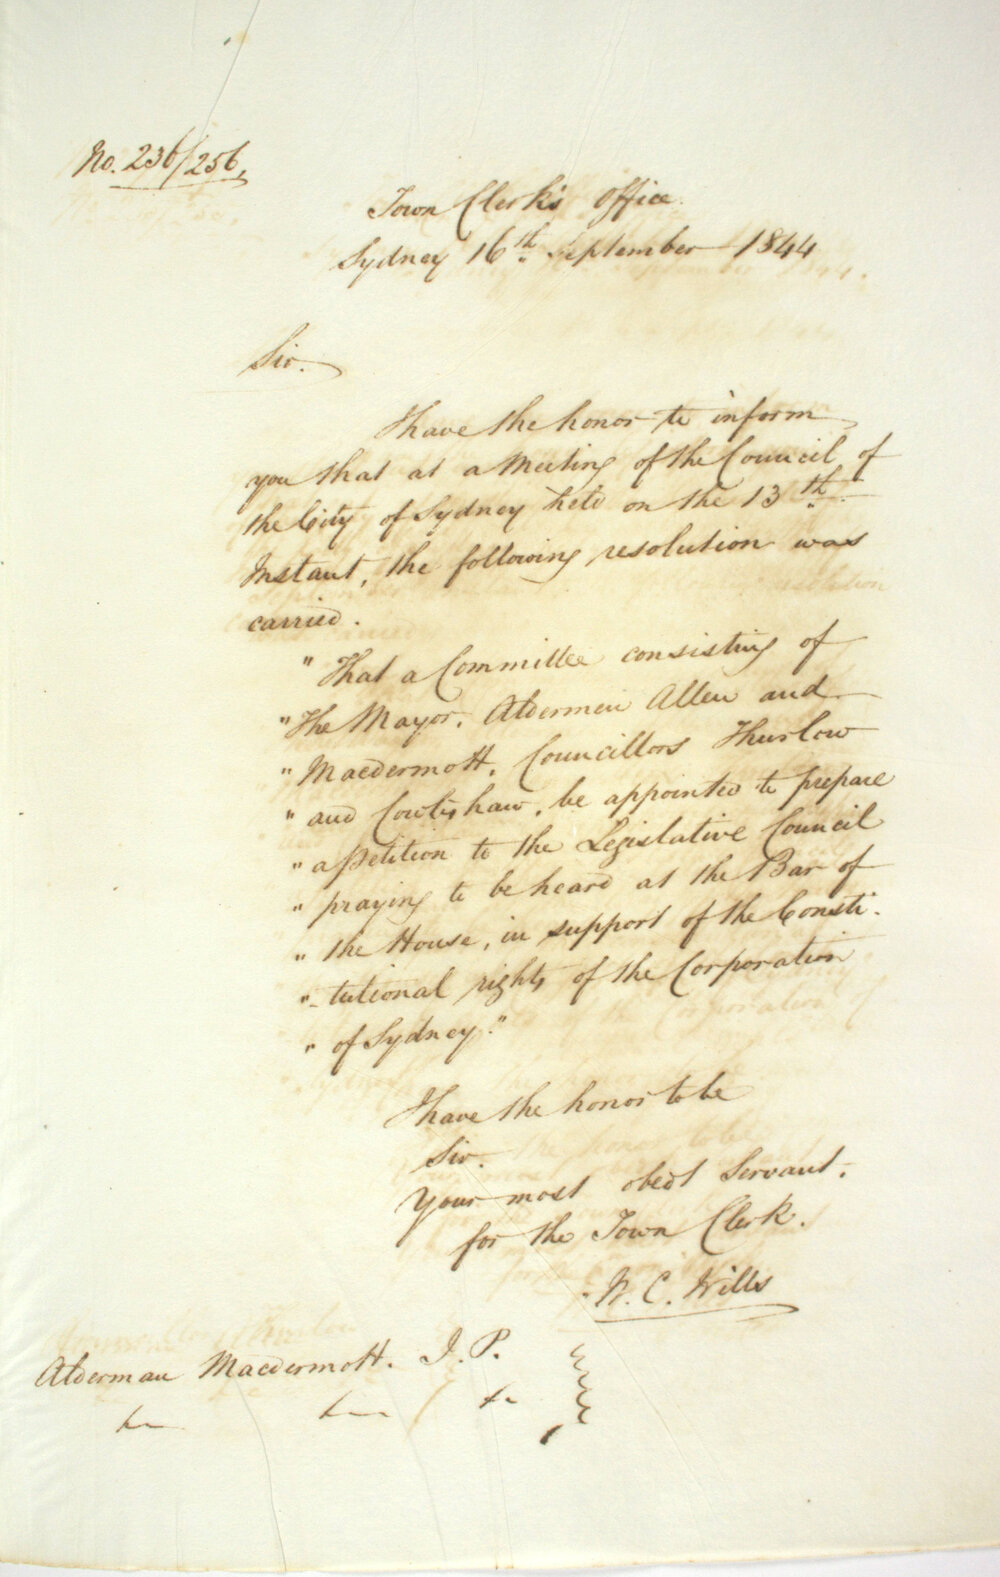 No. 236/256,
Town Clerk's Office.
Sydney 16th. September 1844
Sir.
I have the honor to inform
you that at a Meeting of the Council of
the City of Sydney held on the 13th.
Instant, the following resolution was
carried.
" That a Committee consisting of
" The Mayor. Aldermen Allen and
" Macdermott. Councillors Thurlow
" and Cowlishaw, be appointed to prepare
" a Petition to the Legislative Council
" praying to be heard at the Bar of
" the House, in support of the Consti-
" -tutional rights of the Corporation
" of Sydney."
I have the honor to be
Sir.
Your most obedt Servant.
for the Town Clerk.
W. C. Wills
Alderman Macdermott. J. P.